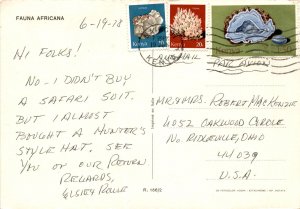 FAUNA AFRICANA
6-19-78
HI FOLKS!
NO - I DIDN'T BUY
A SAFARI SUIT.
BUT I ALMOST
BOUGHT A HUNTER'S
STYLE HAT. SEE
YOU ON OUR RETURN
REGARDS,
Kenya 20c
Kenya 20c
Kenya
AIR MAIL
PAR AVION
MR & MRS. ROBERT MACKENZIE
4052 OAKWOOD CIRCLE
NO. RIDGEVILLE, OHIO
44039
U.S.A.